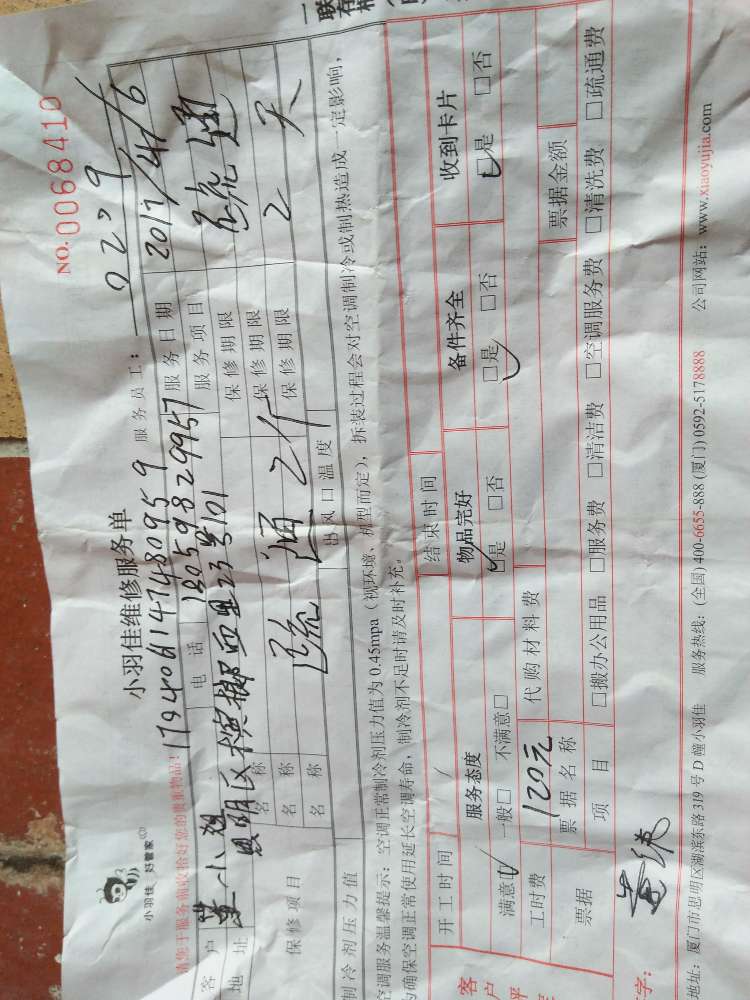 联
存
NO.0068410
小羽佳 好管家
小羽佳维修服务单
179406147480959 服务员工：0229
请您于服务前收拾好您的贵重物品！
客户 董小姐 电话 18059829957 服务日期 2017/4/6
地址 思明区槟榔西里23号101 服务项目 疏通
保修项目 名称 保修期限
名称 疏通2个 保修期限 2天
名称 保修期限
制冷剂压力值 出风口温度
空调服务温馨提示：空调正常制冷剂压力值为0.45mpa（视环境、机型而定），拆装过程会对空调制冷或制热造成一定影响，
为确保空调正常使用延长空调寿命，制冷剂不足时请及时补充。
开工时间 结束时间
客户 服务态度 物品完好 备件齐全 收到卡片
满意☑ 一般□ 不满意□ ☑是 □否 ☑是 □否 ☑是 □否
工时费 120元 代购材料费
票据 票据名称 票据金额
项目 □搬办公用品 □服务费 □清洁费 □空调服务费 □清洗费 □疏通费
字：
地址：厦门市思明区湖滨东路319号D幢小羽佳 服务热线：(全国)400-6655-888 (厦门)0592-5178888 公司网站：www.xiaoyujia.com